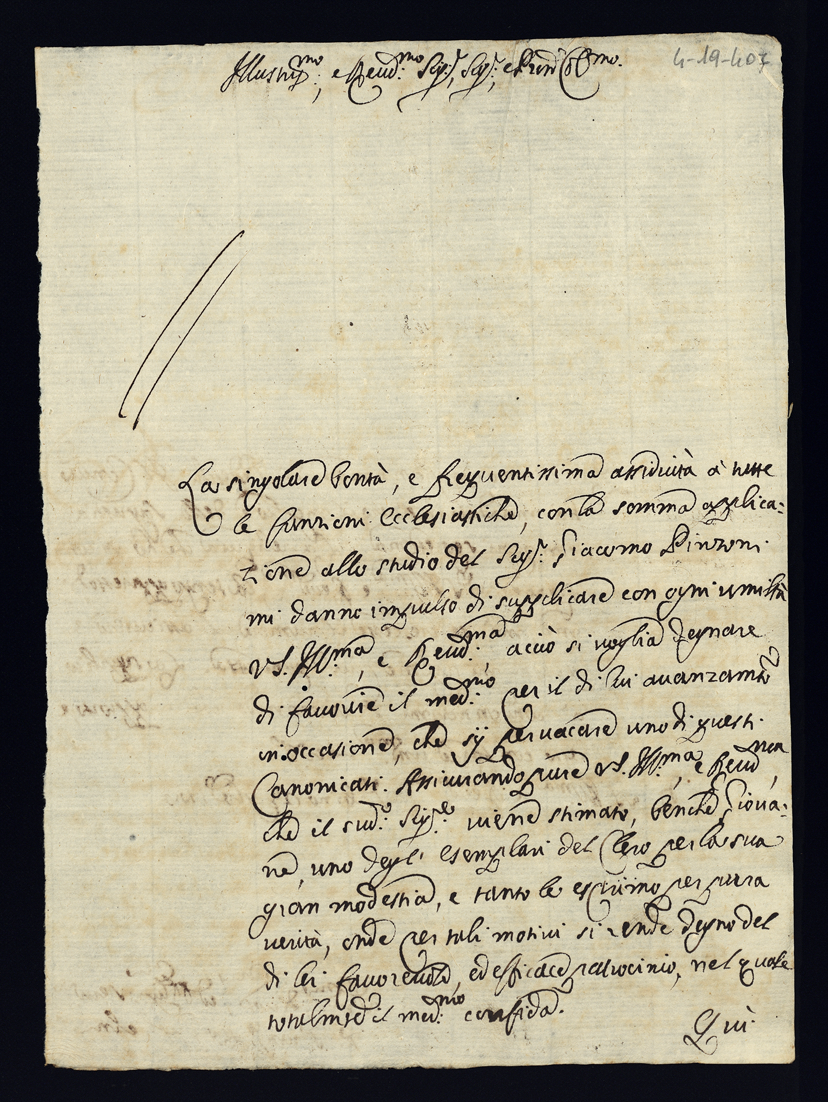 4-19-403
Illustr.mo, e Reud.mo Sig.r, Sig.r, e Pron Col.mo.
La singolare bontà, e frequentissima assiduità à tutte
le funzioni Ecclesiastiche, con la somma applica=
zione allo studio del Sig.r Giacomo Pinzoni
mi danno impulso di supplicare con ogni umiltà
VS. Ill.ma, e Reud.ma acciò si voglia degnare
di favorire il med.mo per il di lui avanzamto
in occasione, che sij per vacare uno di questi
Canonicati. Assicurando pure VS. Ill.ma, e Reud.ma,
che il sud.o Sig.e viene stimato, benche Giova=
ne, uno degli esemplari del Clero per la sua
gran modestia, e tanto le esprimo per pura
verità, onde per tali motivi si rende degno del
di lei favorevole, ed efficace patrocinio, nel quale
totalmte il med.mo confida.
Qui